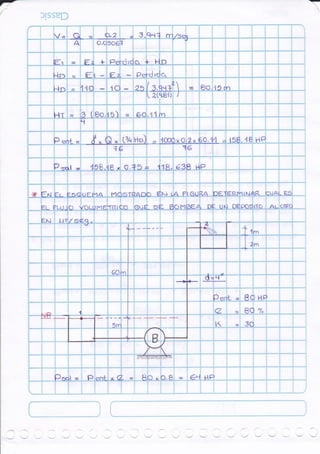 V = Q/A = 0.2/0.05067 = 3.947 m/seg
E1 = E2 + Perdida + HD
HD = E1 - E2 - Perdida
HD = 110 - 10 - 25 (3.947²/2(9.81)) = 80.15 m
HT = 3/4 (80.15) = 60.11 m
P ent = γ x Q x (3/4 HD)/76 = 1000 x 0.2 x 60.11/76 = 158.18 HP
P sal = 158.18 x 0.75 = 118.638 HP
* EN EL ESQUEMA MOSTRADO EN LA FIGURA DETERMINAR CUAL ES
EL FLUJO VOLUMETRICO QUE SE BOMBEA DE UN DEPOSITO AL OTRO
EN LIT/SEG.
2
1m
2m
60m
d=4"
Pent = 80 HP
NR
1
5m
B
K = 30
80 %
Psal = Pent x e = 80 x 0.8 = 64 HP
Classic